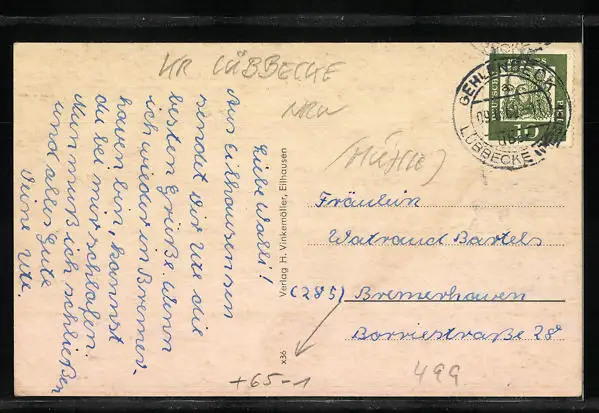 KR LÜBBECKE
NRW
(MÜHLE)
Liebe Walli!
Aus Eilhausen sendet Dir Ute die
besten Grüße. Wenn
ich wieder in Bremer-
haven bin, kannst
du bei mir schlafen.
Nun muß ich schließen
und alles Gute
Deine Ute.
Verlag H. Vinkemöller, Eilhausen
x36
GEHLENBECK
LÜBBECKE
10
Fräulein
Watraud Bartels
(285) Bremerhaven
Borriestraße 28
+65-1
499